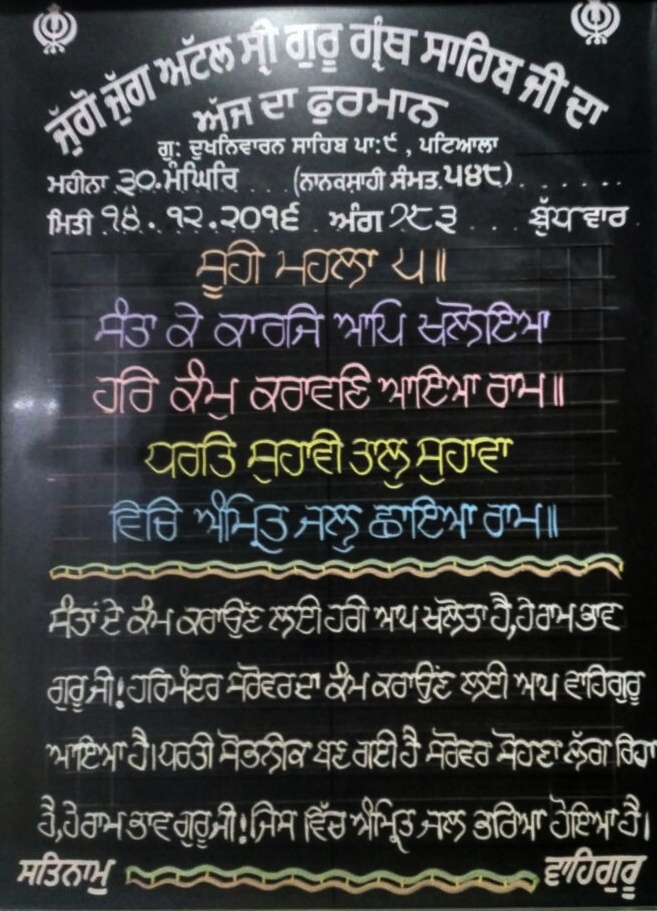 ਜੁੱਗੋ ਜੁੱਗ ਅਟੱਲ ਸ੍ਰੀ ਗੁਰੂ ਗ੍ਰੰਥ ਸਾਹਿਬ ਜੀ ਦਾ
ਅੱਜ ਦਾ ਫੁਰਮਾਨ
ਗੁ: ਦੁਖਨਿਵਾਰਨ ਸਾਹਿਬ ਪਾ:੯ , ਪਟਿਆਲਾ
ਮਹੀਨਾ ੩੦.ਮੱਘਿਰ (ਨਾਨਕਸ਼ਾਹੀ ਸੰਮਤ.੫੪੮)
ਮਿਤੀ ੧੪.੧੨.੨੦੧੬ ਅੰਗ ੭੮੩ ਬੁੱਧਵਾਰ
ਸੂਹੀ ਮਹਲਾ ੫॥
ਸੰਤਾ ਕੇ ਕਾਰਜਿ ਆਪਿ ਖਲੋਇਆ
ਹਰਿ ਕੰਮੁ ਕਰਾਵਣਿ ਆਇਆ ਰਾਮ॥
ਧਰਤਿ ਸੁਹਾਵੀ ਤਾਲੁ ਸੁਹਾਵਾ
ਵਿਚਿ ਅੰਮ੍ਰਿਤ ਜਲੁ ਛਾਇਆ ਰਾਮ॥
ਸੰਤਾਂ ਦੇ ਕੰਮ ਕਰਾਉਂਣ ਲਈ ਹਰੀ ਆਪ ਖਲੋਤਾ ਹੈ,ਹੇ ਰਾਮ ਭਾਵ
ਗੁਰੂ ਜੀ! ਹਰਿਮੰਦਰ ਸਰੋਵਰ ਦਾ ਕੰਮ ਕਰਾਉਂਣ ਲਈ ਆਪ ਵਾਹਿਗੁਰੂ
ਆਇਆ ਹੈ। ਧਰਤੀ ਸੋਭਨੀਕ ਬਣ ਗਈ ਹੈ ਸਰੋਵਰ ਸੋਹਣਾ ਲੱਗ ਰਿਹਾ
ਹੈ,ਹੇ ਰਾਮ ਭਾਵ ਗੁਰੂ ਜੀ! ਜਿਸ ਵਿੱਚ ਅੰਮ੍ਰਿਤ ਜਲ ਭਰਿਆ ਹੋਇਆ ਹੈ।
ਸਤਿਨਾਮੁ ਵਾਹਿਗੁਰੂ